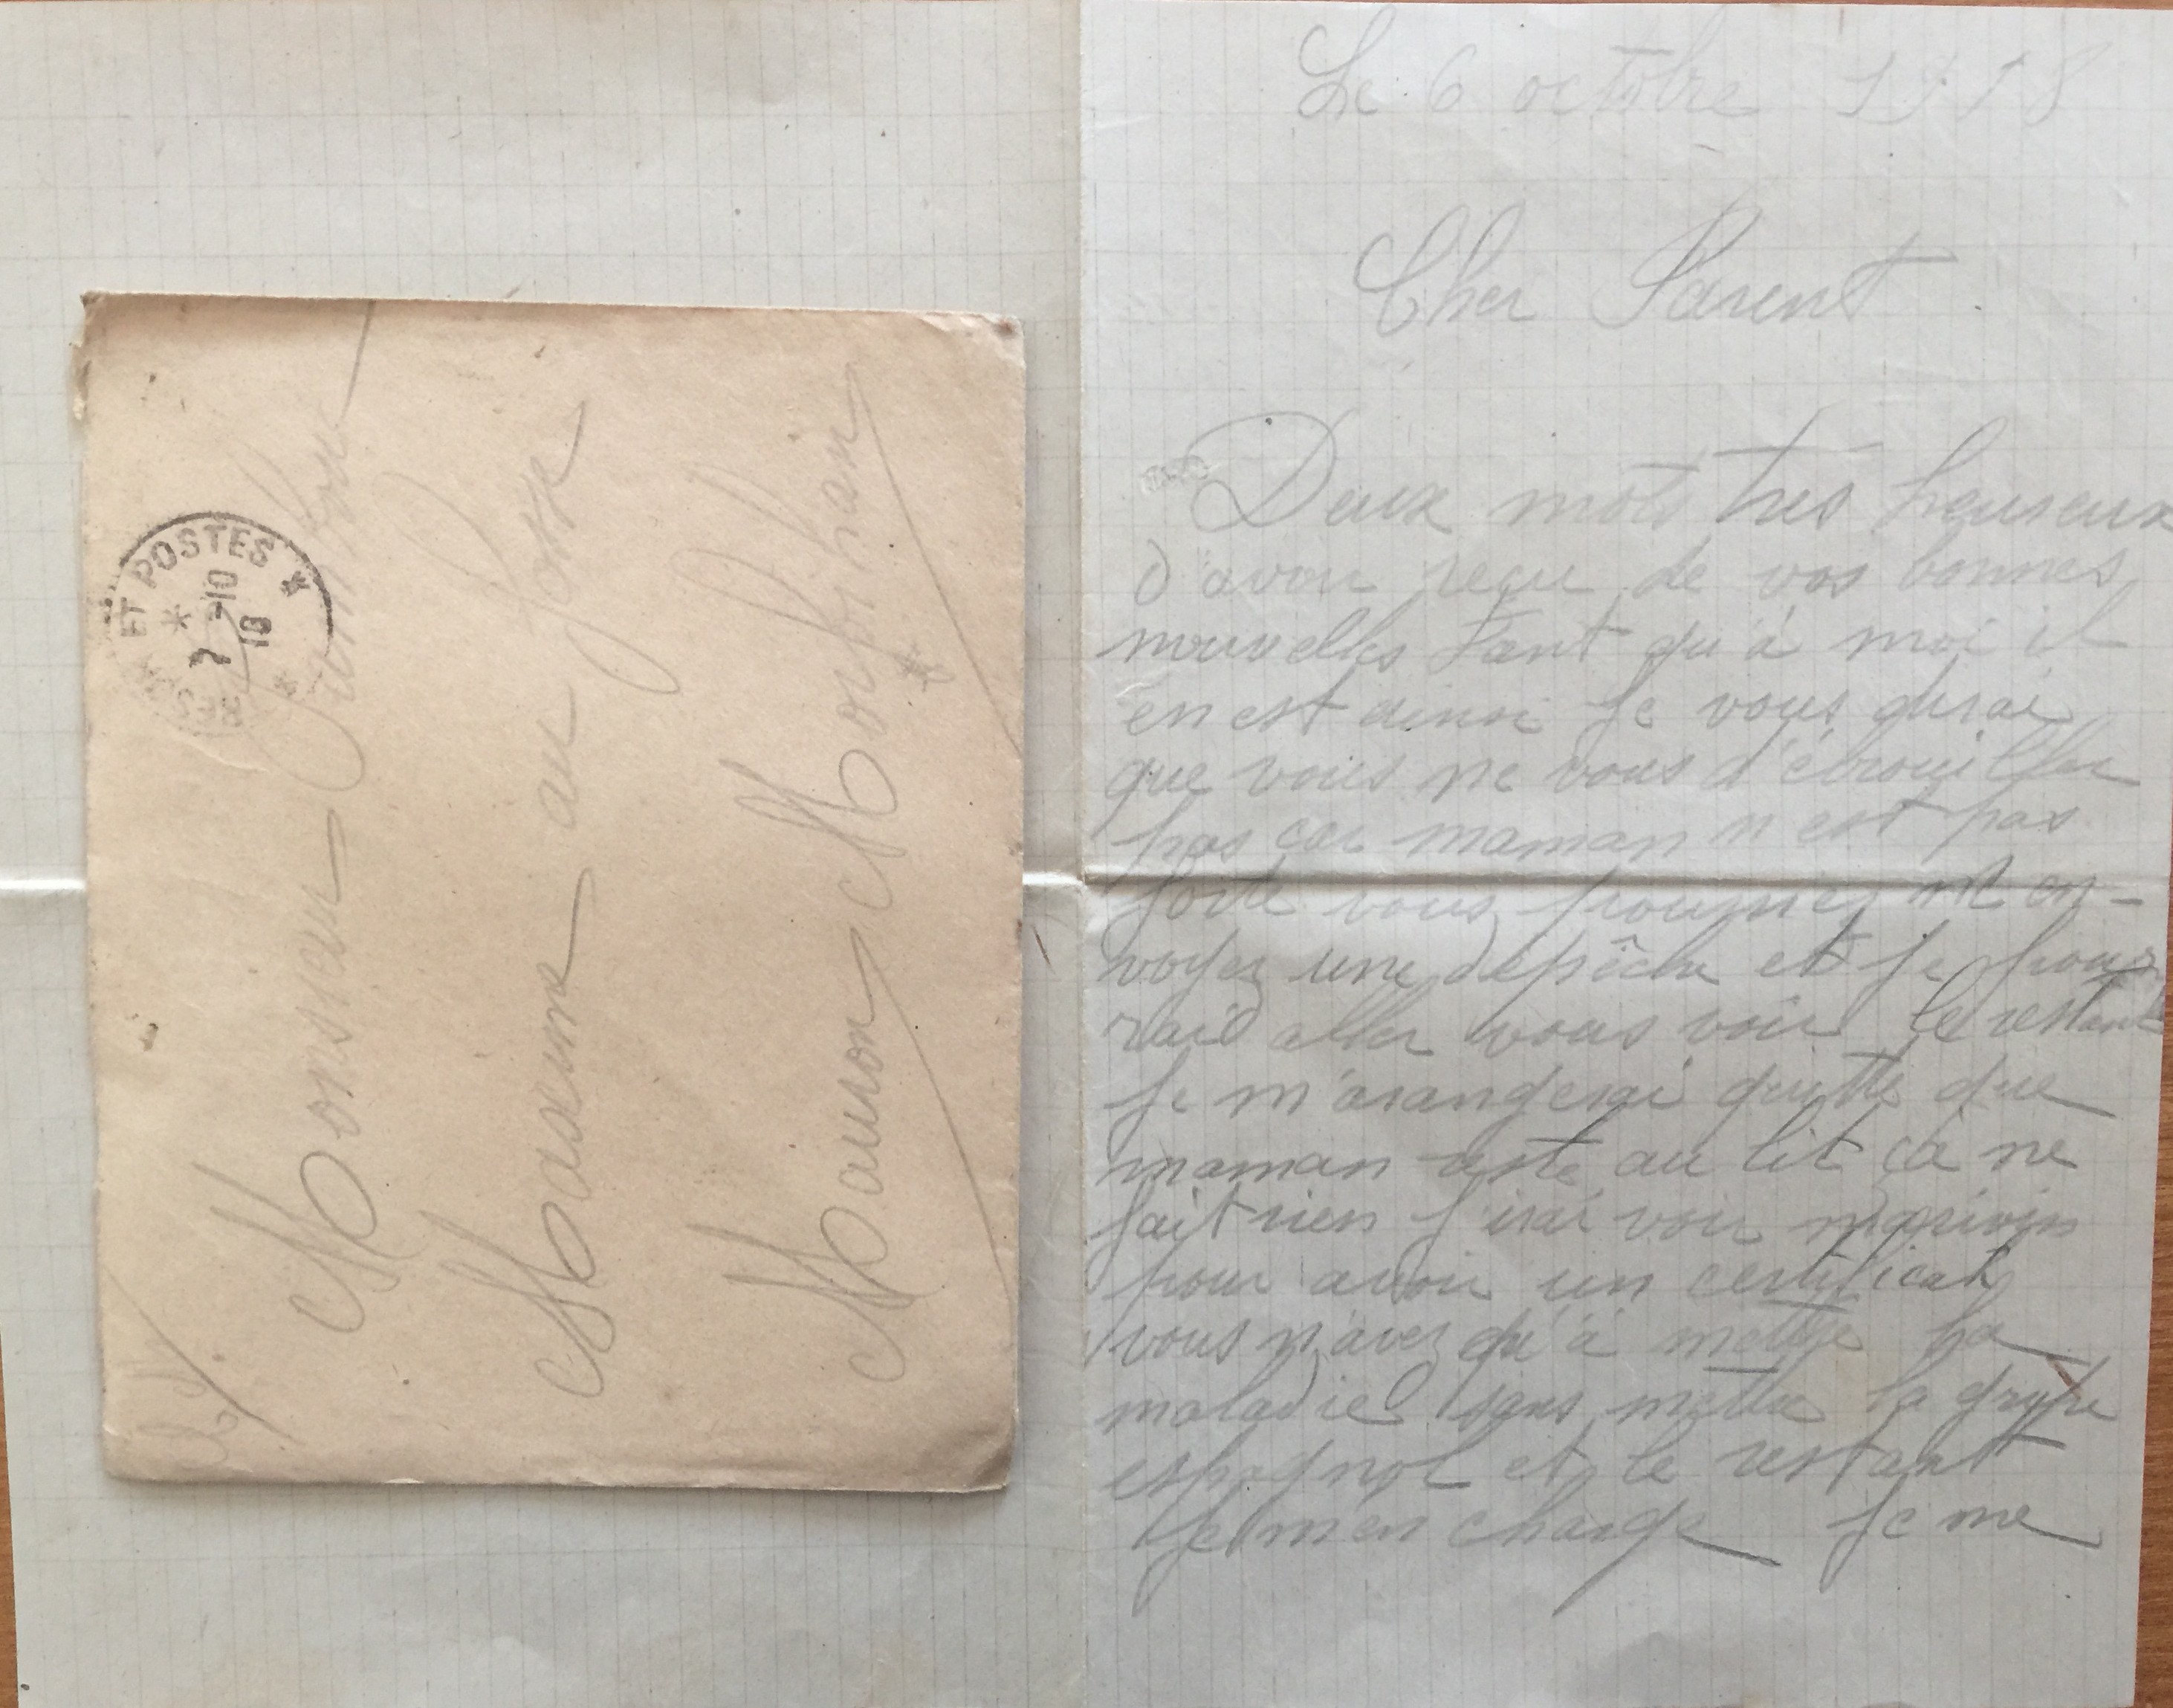 F.M.
Monsieur
Maxime au
Mauron Morbihan
ET POSTES
7 -10
18
Le 6 octobre 1918
Cher Parent
Deux mots très heureux
d'avoir reçu de vos bonnes
nouvelles Tant qu'à moi il
en est ainsi Je vous dirai
que vous ne vous d'ébrouiller
pas car maman n'est pas
forte vous pouriez m'en-
voyer une dépêche et je pour
raid aller vous voir le restant
Je m'arangerai quitte que
maman reste au lit ça ne
fait rien J'irai voir
pour avoir un certificat
vous n'avez qu'à mettre la
maladie sans mettre la grippe
espagnol et le restant
Je m'en charge Je me